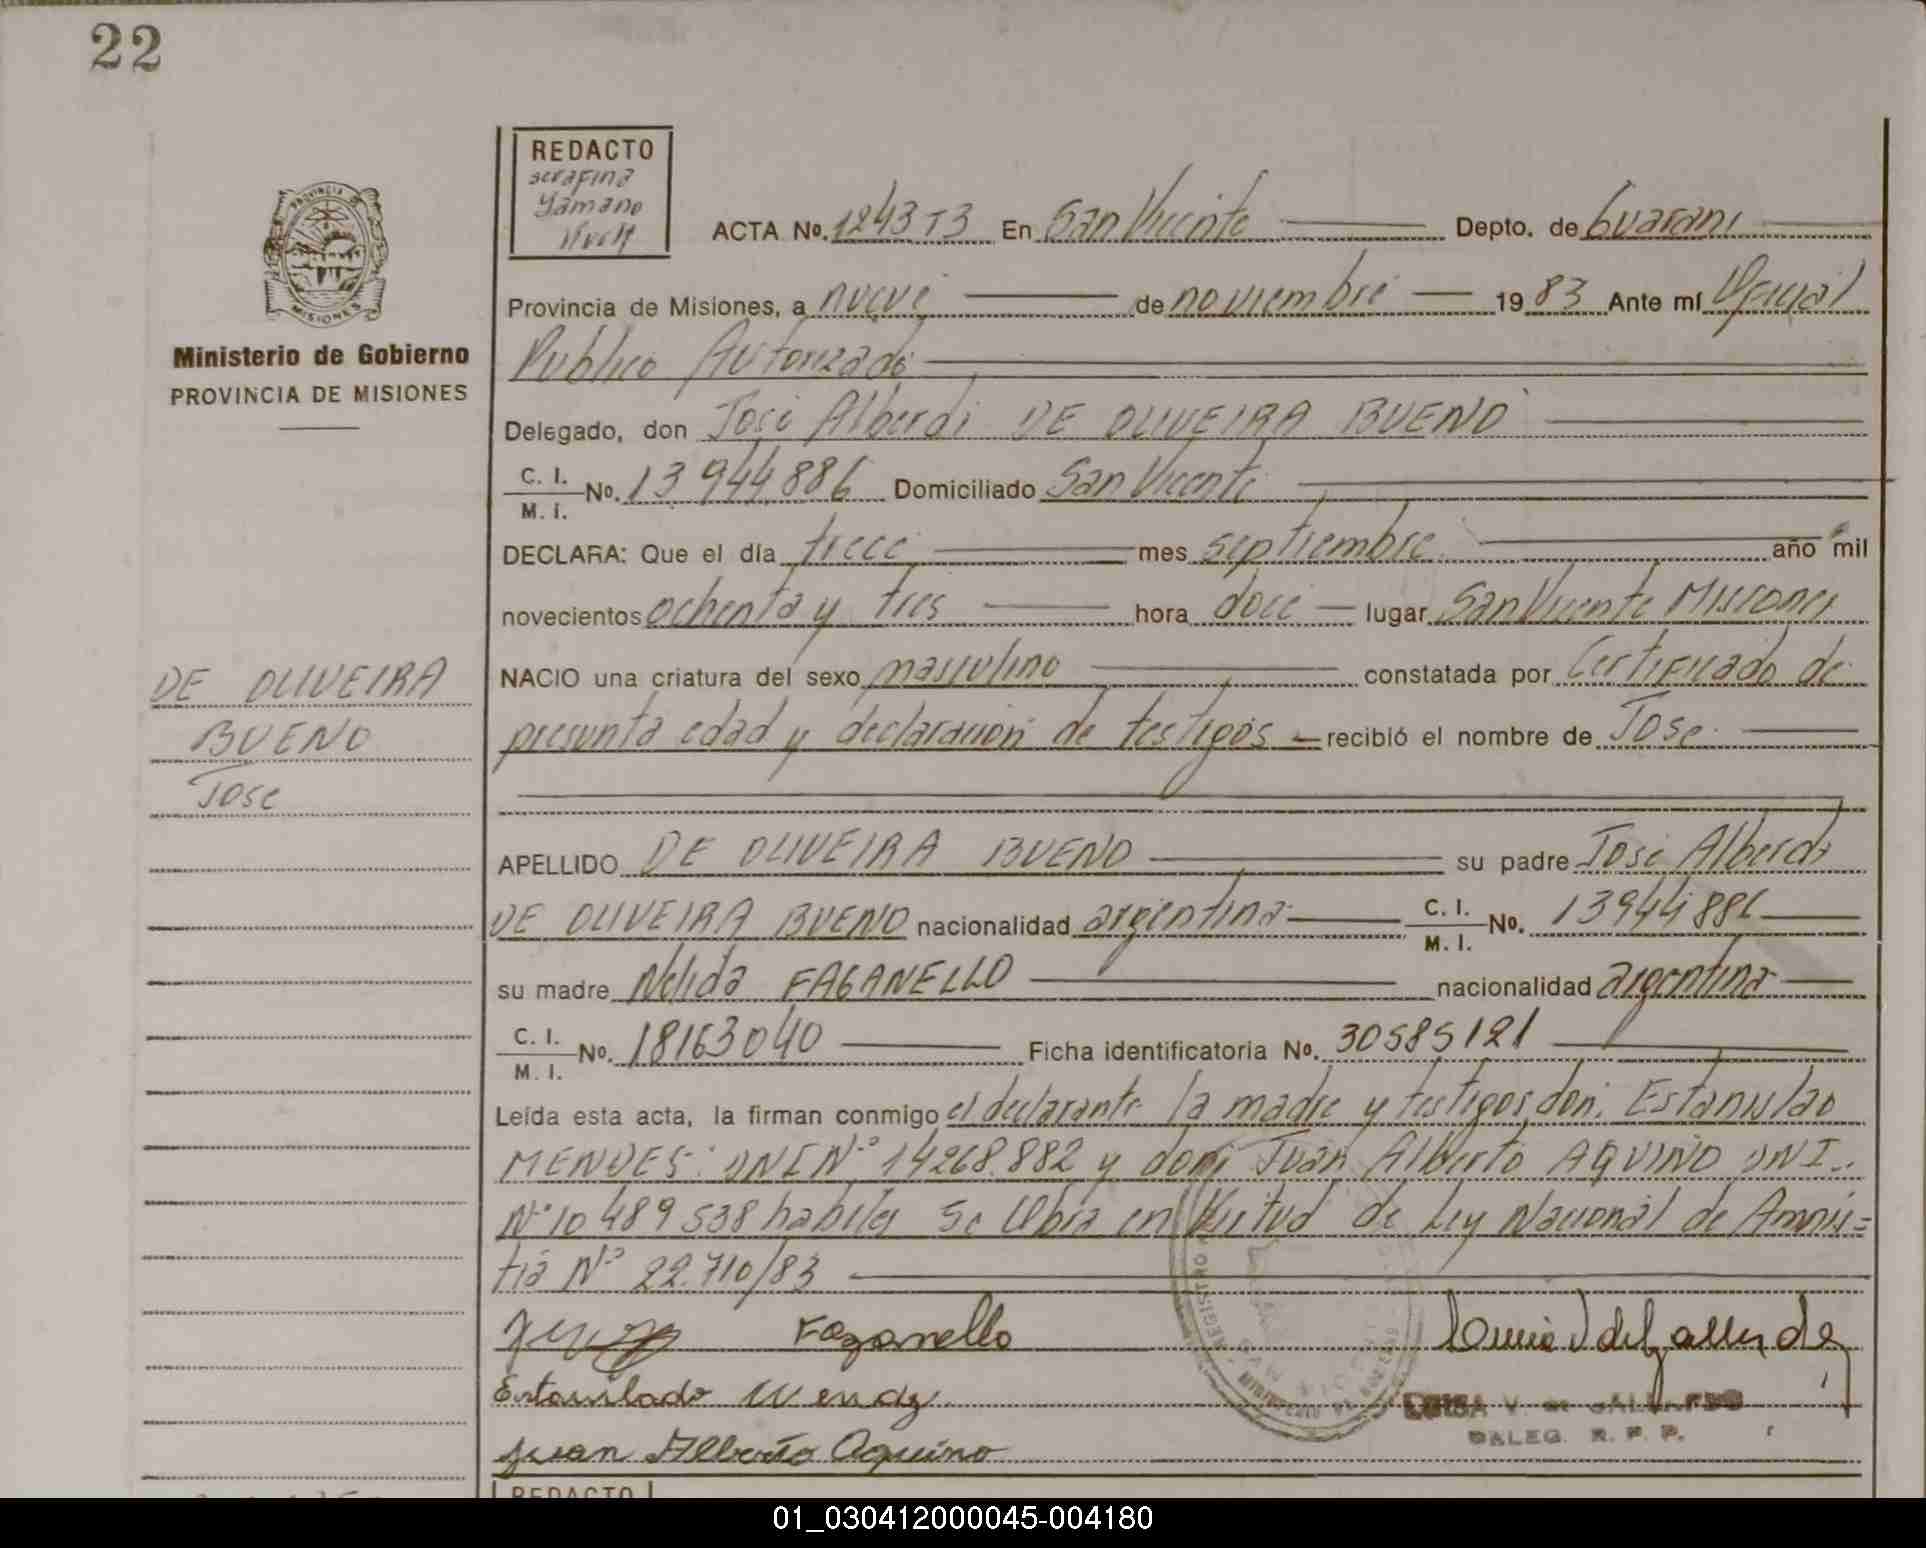 22
REDACTO
serafina
Yamano
PROVINCIA DE
MISIONES
ACTA No. 1243 T3 En San Vicente Depto. de Guarani
Provincia de Misiones, a nueve de noviembre 1983 Ante mí Oficial
Publico Autorizado
Ministerio de Gobierno
PROVINCIA DE MISIONES
Delegado, don José Alberdi DE OLIVEIRA BUENO
C. I.
M. I. No. 13944886 Domiciliado San Vicente
DECLARA: Que el día trece mes septiembre año mil
novecientos ochenta y tres hora doce lugar San Vicente Misiones
NACIO una criatura del sexo masculino constatada por Certificado de
presunta edad y declaración de testigos recibió el nombre de Jose
DE OLIVEIRA
BUENO
Jose
APELLIDO DE OLIVEIRA BUENO su padre José Alberdi
DE OLIVEIRA BUENO nacionalidad argentina C. I.
M. I. No. 13944886
su madre Nelida FAGANELLO nacionalidad argentina
C. I.
M. I. No. 18163040 Ficha identificatoria No. 30585121
Leída esta acta, la firman conmigo el declarante la madre y testigos, don: Estanislao
MENDES: DNI Nº 14268.882 y don: Juan Alberto AQUINO DNI.
Nº 10489538 habiles Se Labra en Virtud de Ley Nacional de Amnis=
tia Nº 22.710/83
Faganello
Estanilado
Juan Alberto Aquino
LUISA V. de GALLARDO
DALEG. R. P. P.
REDACTO
01_030412000045-004180